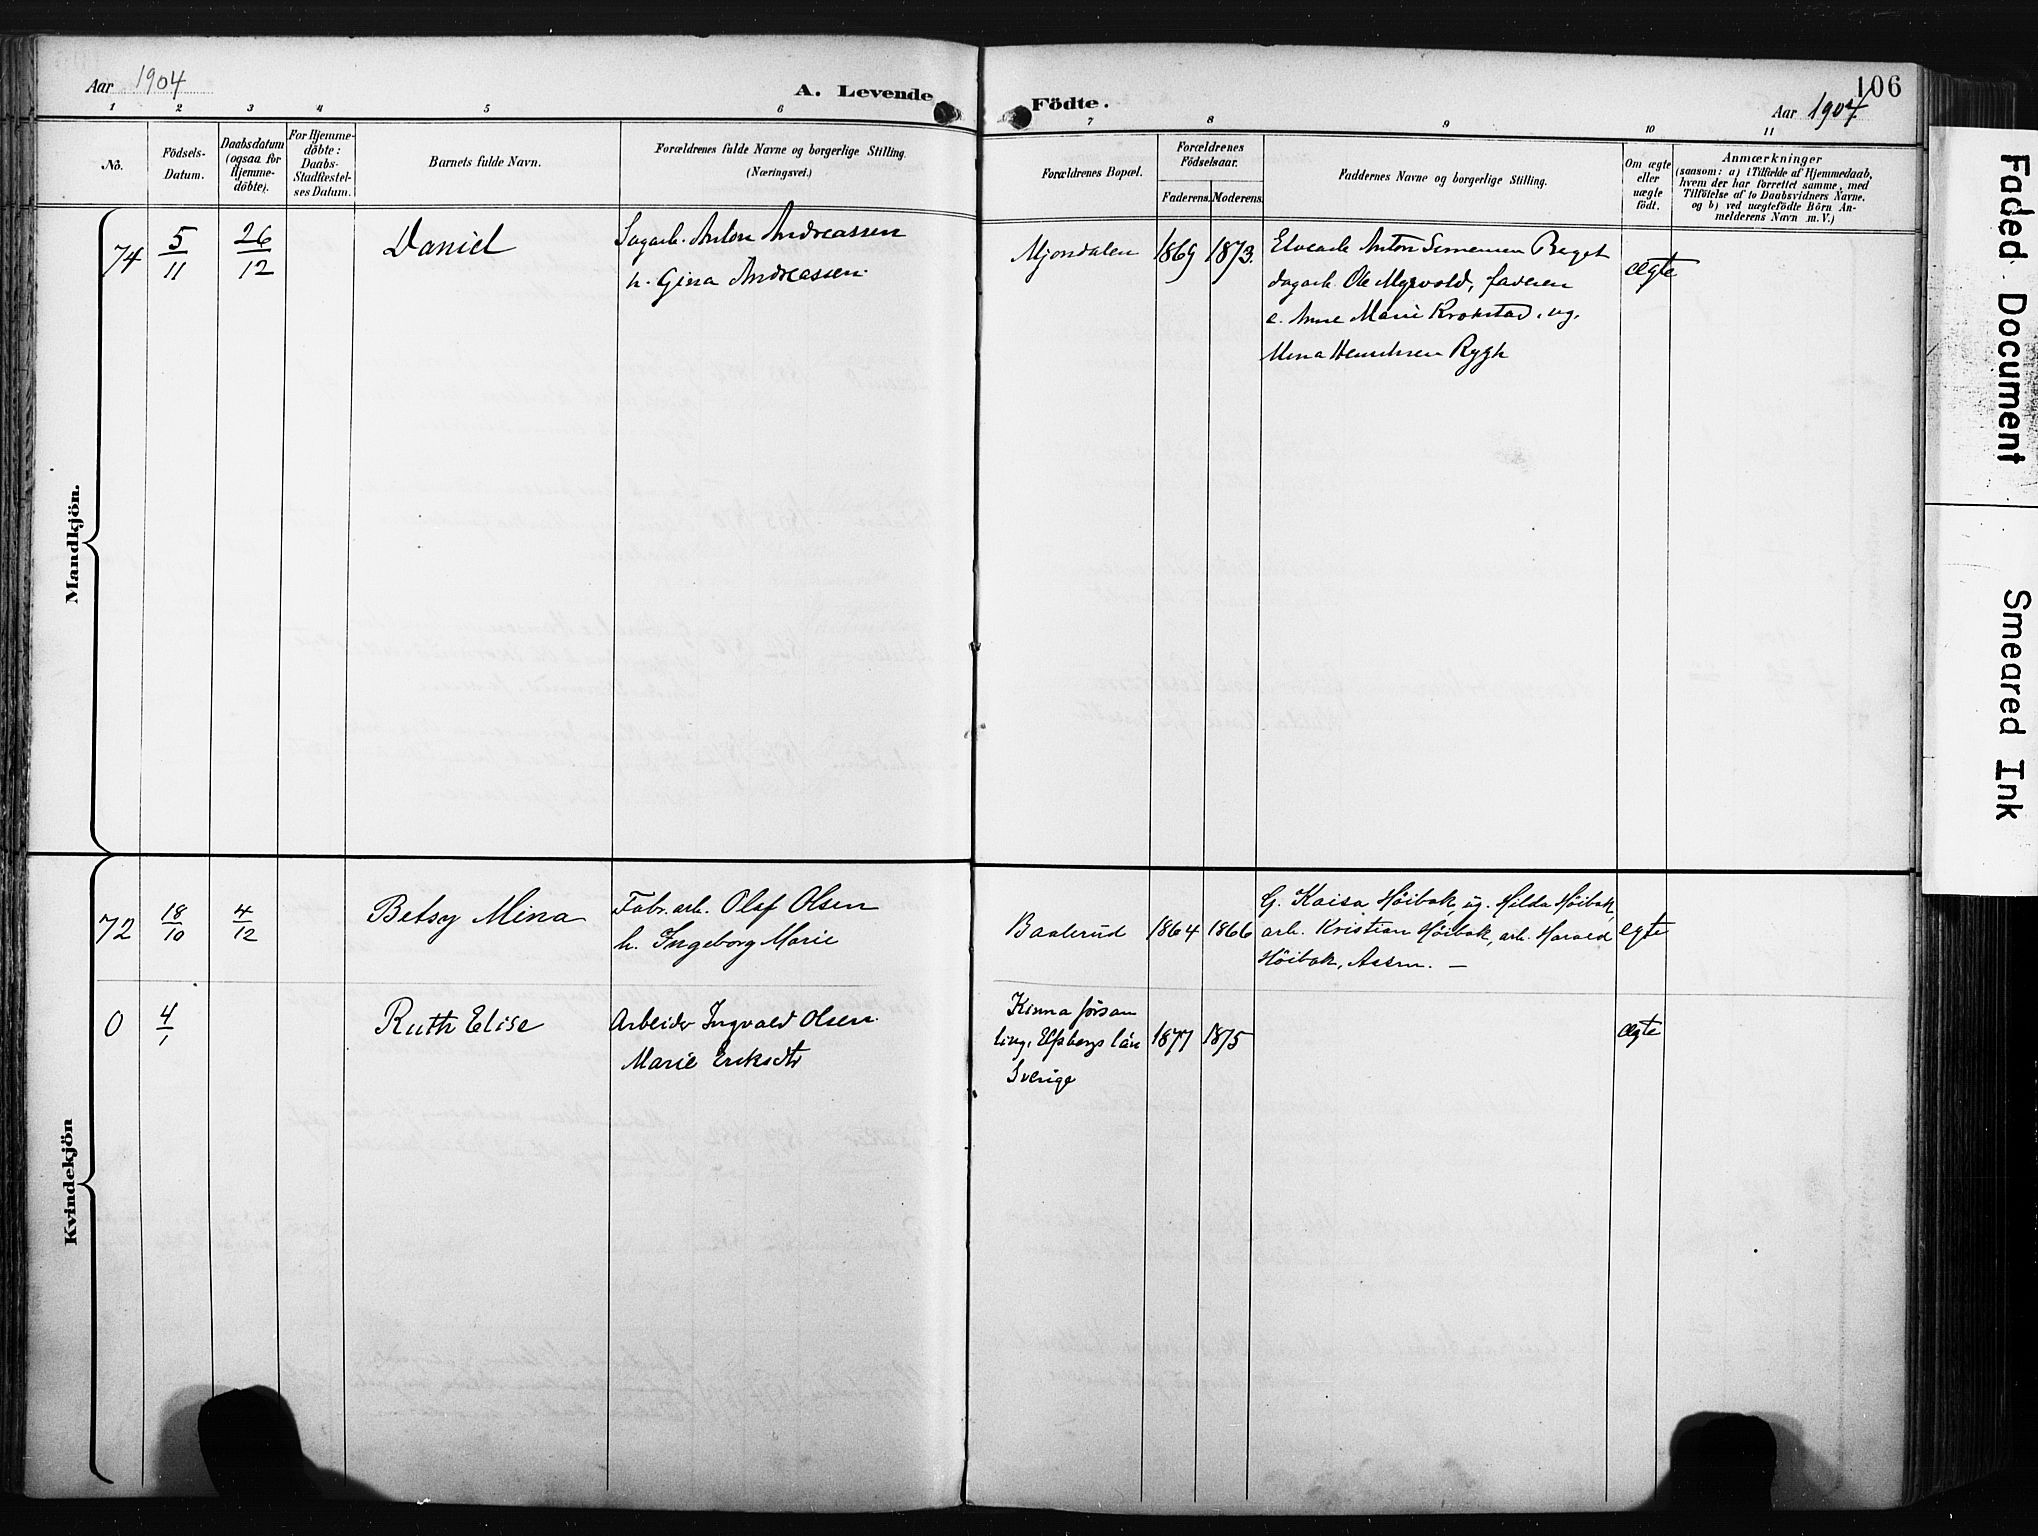 Aar 1904
A. Levende
Födte.
106
Aar 1904
1 2 3 4 5 6 7 8 9 10 11
No.
Födsels-
Datum.
Daabsdatum
(ogsaa for
Hjemme-
döbte).
For Hjemme-
döbte:
Daabs-
Stadfæstel-
ses Datum.
Barnets fulde Navn.
Forældrenes fulde Navne og borgerlige Stilling.
(Næringsvei.)
Forældrenes Bopæl.
Forældrenes
Födselsaar.
Faderens.
Moderens.
Faddernes Navne og borgerlige Stilling.
Om ægte
eller
uægte
födt.
Anmærkninger
(saasom: a) i Tilfælde af Hjemmedaab,
hvem der har forrettet samme, med
Tilföielse af to Daabsvidners Navne.
og b) ved uægtefödte Börn An-
melderens Navn m. V.)
Mandkjön.
74
5/11
26/12
Daniel
Sagarb. Anton Andreassen
h. Gina Andreassen.
Mjøndalen
1869
1873.
Elvearb Anton Simensen
Sagarb. Ole Myrvold, faderen
e. Anne Marie Krokstad, ug.
Mina Henriksen Rygh
ægte
Kvindekjön
72
18/10
4/12
Betsy Mina
Fabr. arb. Olaf Olsen
h. Ingeborg Marie
Baalerud
1864
1866
G. Kaisa Höibak, ug. Hilda Höibak,
arb. Kristian Höibak, arb. Harald
Höibak, Assen. –
egte
0
4/1
Ruth Elise
Arbeider Ingvald Olsen.
Marie Eriksdtr
Kinna försam
ling, Elfsborgs län
Sverige
1877
1875
ægte
Faded Document
Smeared Ink